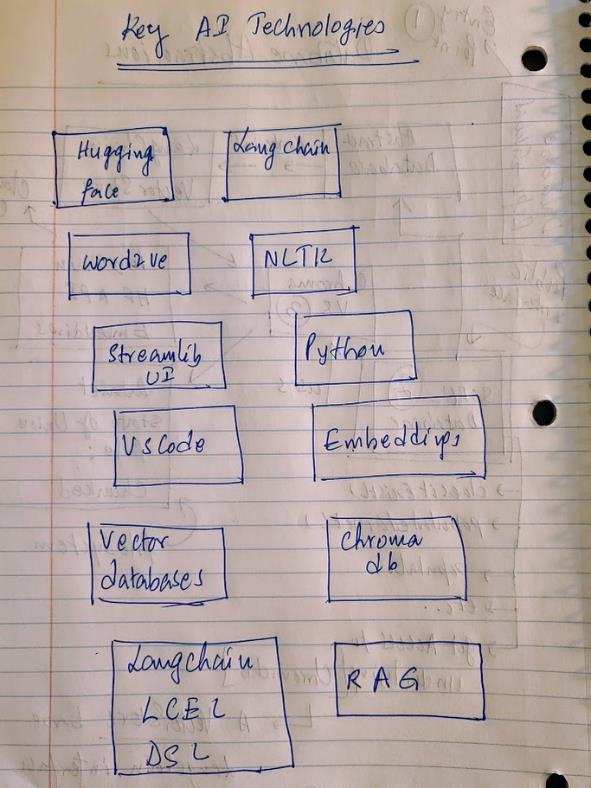 Key AI Technologies
Hugging
face
Langchain
word2ve
NLTK
Streamlib
UI
Python
VSCode
Embeddings
Vector
databases
Chroma
db
Langchain
LCEL
DSL
RAG